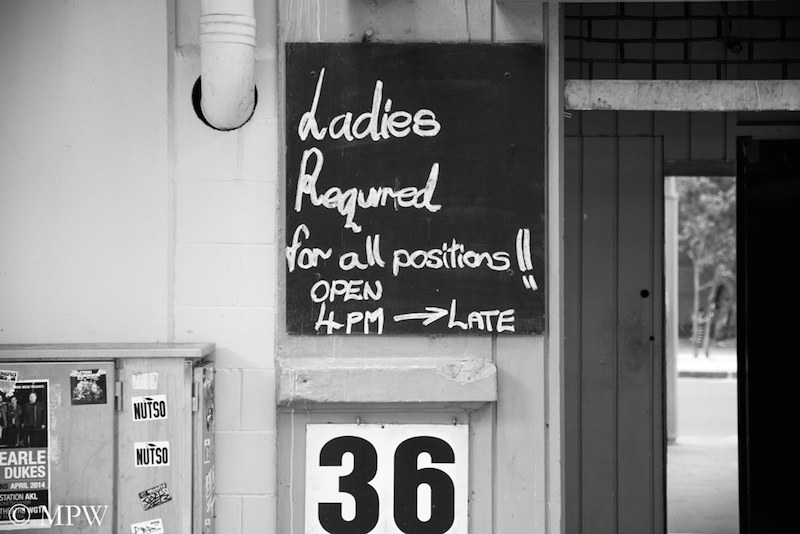 Ladies
Required
for all positions!!
OPEN
4PM → LATE
36
NUTSO
NUTSO
EARLE
DUKES
APRIL 2014
STATION AKL
WGTN
© MPW